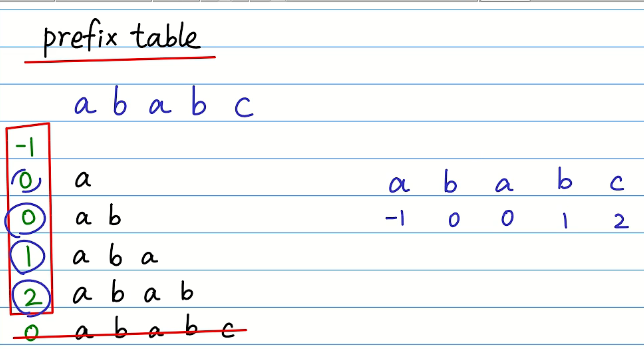 prefix table
a b a b c
-1
0 a
0 a b
1 a b a
2 a b a b
0 a b a b c
a b a b c
-1 0 0 1 2